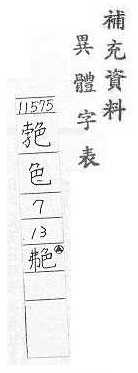 補充資料
異體字表
11575
色
7
13
艴